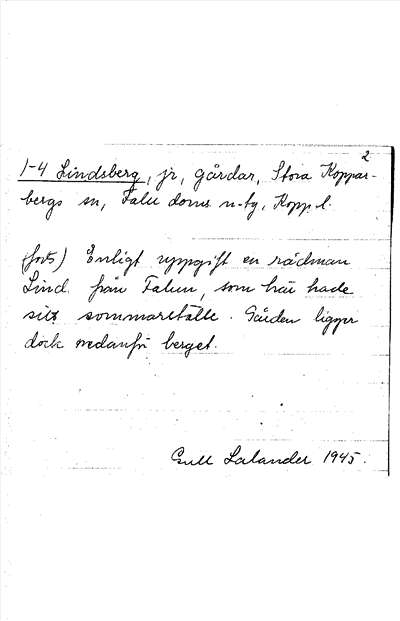 2.
1-4 Lindsberg, jr, gårdar, Stora Koppar-
bergs sn, Falu doms n-fg, Kopp. l.
(forts) Enligt uppgift en rådman
Lind från Falun, som här hade
sitt sommarställe. Gården ligger
dock nedanför berget.
Gull Lalander 1945.